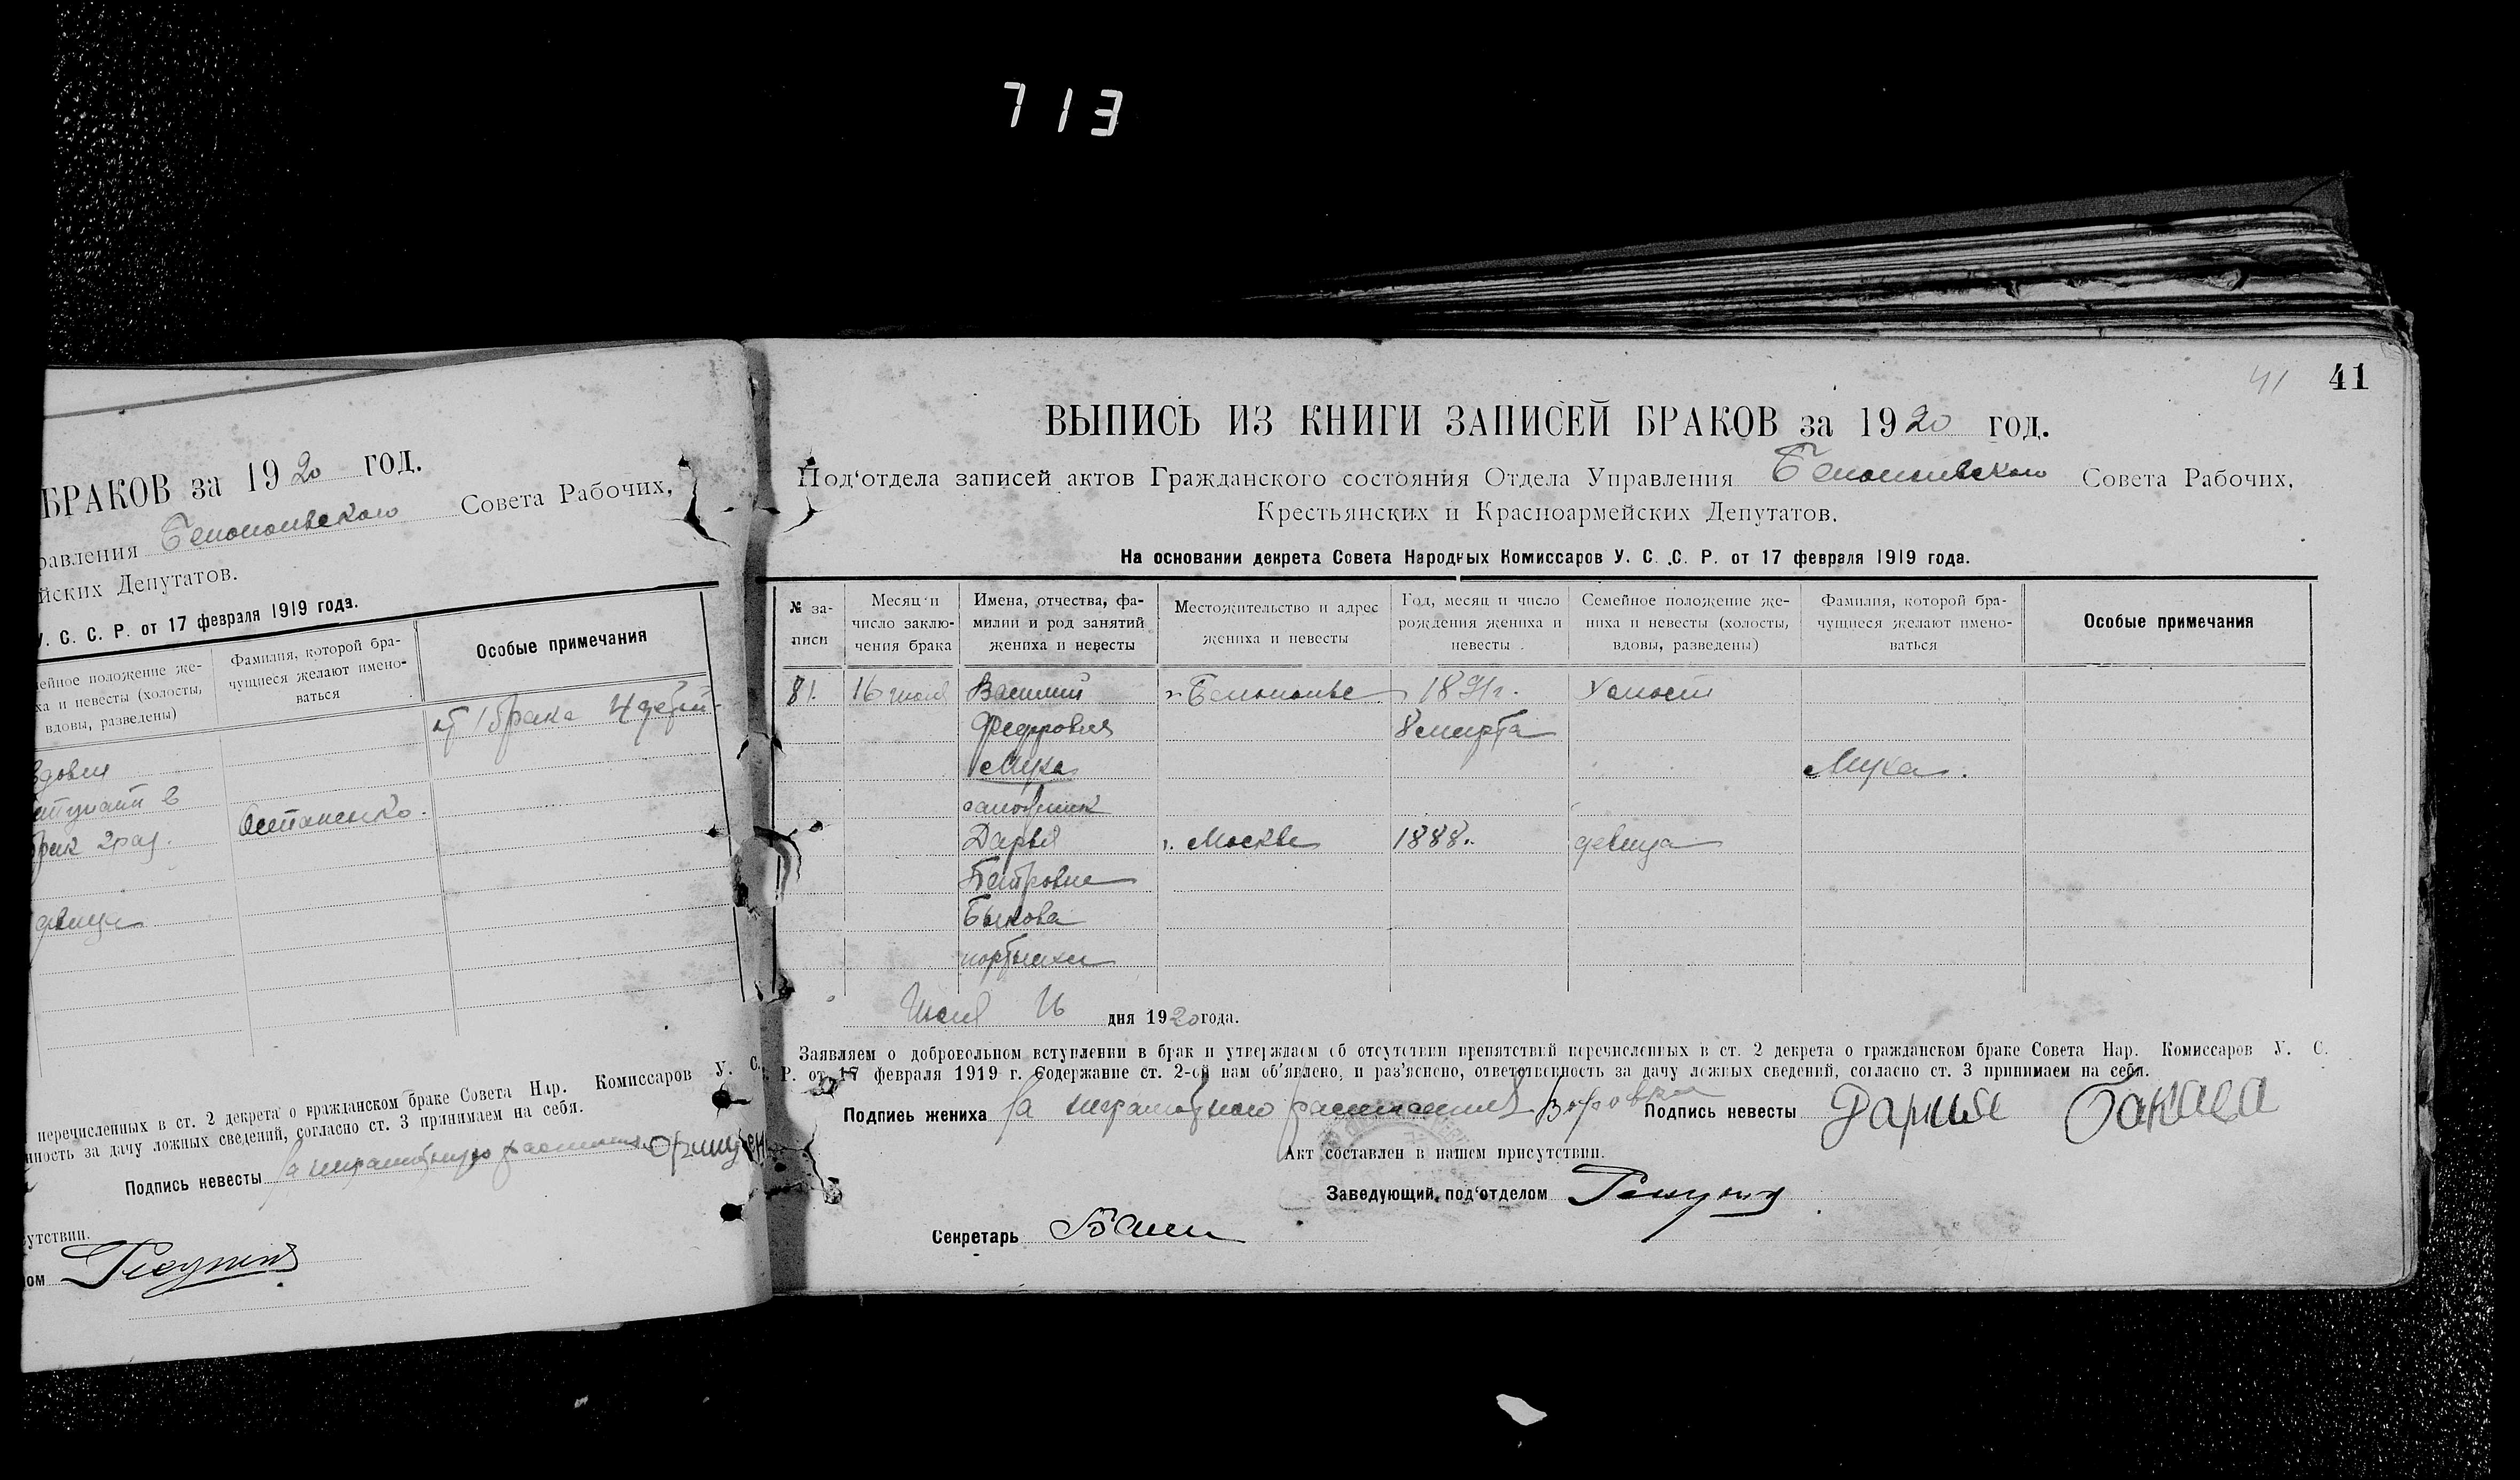 713
БРАКОВ за 1920 год.
равления Белопольского Совета Рабочих,
йских Депутатов.
У. С. С. Р. от 17 февраля 1919 года.
ейное положение же-
ха и невесты (холосты,
вдовы, разведены)
Фамилия, которой бра-
чущиеся желают имено-
ваться
Особые примечания
от 1 брака 4 детей
вдовец
вступает в
брак 2 раз.
Остапенко.
девица
перечисленных в ст. 2 декрета о гражданском браке Совета Нар. Комиссаров У. С.
нность за дачу ложных сведений, согласно ст. 3 принимаем на себя.
Подпись невесты За неграмотную
утствии.
ом
41
41
ВЫПИСЬ ИЗ КНИГИ ЗАПИСЕЙ БРАКОВ за 1920 год.
Под‘отдела записей актов Гражданского состояния Отдела Управления Белопольского Совета Рабочих,
Крестьянских и Красноармейских Депутатов.
На основании декрета Совета Народных Комиссаров У. С. С. Р. от 17 февраля 1919 года.
№ за-
писи
Месяц и
число заклю-
чения брака
Имена, отчества, фа-
милии и род занятий
жениха и невесты
Местожительство и адрес
жениха и невесты
Год, месяц и число
рождения жениха и
невесты
Семейное положение же-
ниха и невесты (холосты,
вдовы, разведены)
Фамилия, которой бра-
чущиеся желают имено-
ваться
Особые примечания
81. 16 июля Василий г. Белополье 1891г. Холост
Федорович 8 марта
Муха Муха.
сапожник
Дарья г. Москве 1888. девица
Петровна
Быкова
портниха
Июля 16 дня 1920 года.
Заявляем о добровольном вступлении в брак и утверждаем об отсутствии препятствий перечисленных в ст. 2 декрета о гражданском браке Совета Нар. Комиссаров У. С.
Р. от 17 февраля 1919 г. Содержание ст. 2-ой нам об‘явлено, и раз‘яснено, ответственность за дачу ложных сведений, согласно ст. 3 принимаем на себя.
Подпись жениха За неграмотного Подпись невесты Дария
Акт составлен в нашем присутствии.
Заведующий под‘отделом
Секретарь